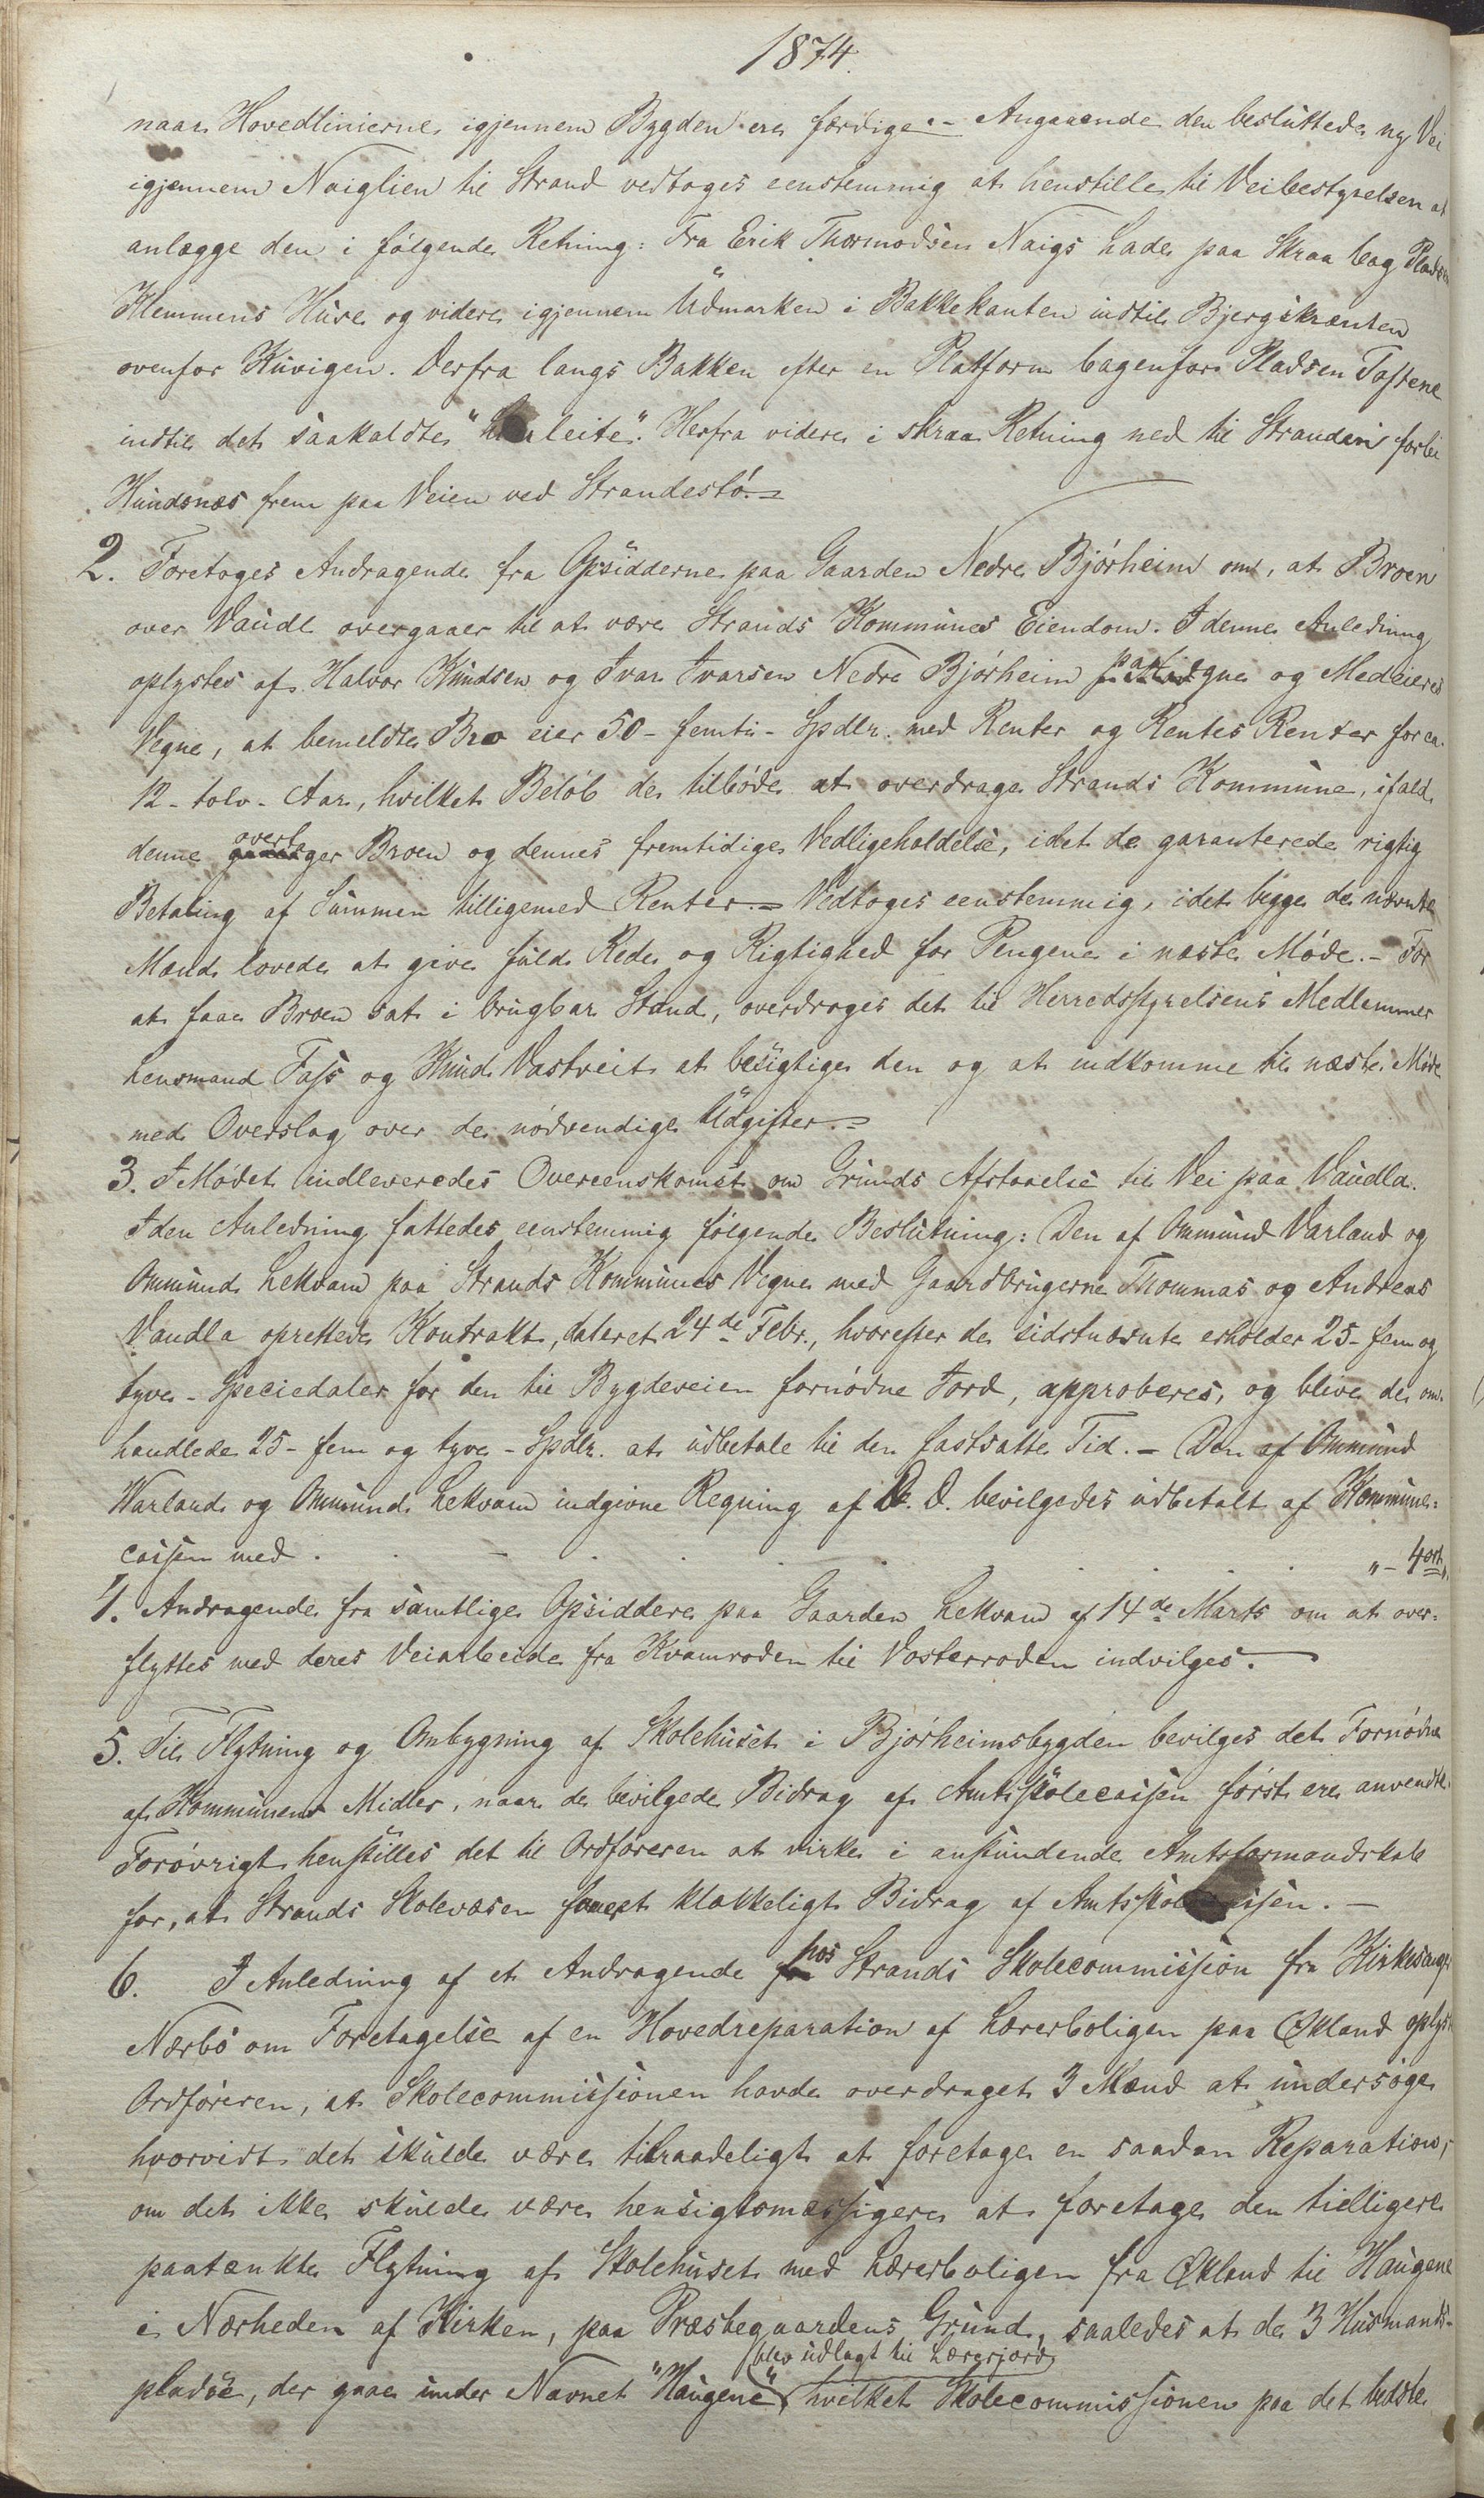 1874.
naar Hovedlinierne igjennem Bygden ere færdige.- Angaaende den besluttede ny Vei
igjennem Naiglien til Strand vedtoges eenstemmig at henstille til Veibestyrelsen at
anlægge den i følgende Retning: Fra Erik Thormodsen Naigs Lade paa Skraa bag Pladsen
Klemmens Huse og videre igjennem Udmarken i Bakkekanten indtil Bjergskrænten
ovenfor Kuvigen. Derfra langs Bakken efter en Platform bagenfor Pladsen Toftene
indtil det saakaldte "leite". Herfra videre i skraa Retning ned til Stranden forbi
Hundsnæs frem paa Veien ved Strandestø.-
2. Foretoges Andragende fra Opsidderne paa Gaarden Nedre Bjørheim om, at Broen
over Vaudl overgaaer til at være Strands Kommunes Eiendom. I denne Anledning
oplystes af Halvor Knudsen og Ivar Ivarsen Nedre Bjørheim paa Eigne og Medeieres
Vegne, at bemeldte Bro eier 50 - femti - Spdlr. med Renter og Rentes Renter for ca.
12 - tolv - Aar, hvilket Beløb de tilbøde at overdrage Strands Kommune, ifald
denne overtager Broen og dennes fremtidige Vedligeholdelse, idet de garanterede rigtig
Betaling af Summen tilligemed Renter.- Vedtoges eenstemmig, idet begge de nævnte
Mænd lovede at give fuld Rede og Rigtighed for Pengene i næste Møde.- For
at faae Broen sat i brugbar Stand, overdroges det til Herredsstyrelsens Medlemmer
Lensmand Fass og Knud Vastveit at besigtige den og at indkomme til næste Møde
med Overslag over de nødvendige Udgifter.-
3. I Mødet indleveredes Overeenskomst om Grunds Afstaaelse til Vei paa Vaudla.
I den Anledning fattedes eenstemmig følgende Beslutning: Den af Ommund Varland og
Ommund Lekvam paa Strands Kommunes Vegne med Gaardbrugerne Thommas og Andreas
Vaudla oprettede Kontrakt, dateret 24de Febr., hvorefter de sidstnævnte erholder 25 - fem og
tyve - Speciedaler for den til Bygdeveien fornødne Jord, approberes, og blive de om-
handlede 25 - fem og tyve - Spdlr. at udbetale til den fastsatte Tid.- Den af Ommund
Warland og Ommund Lekvam indgivne Regning af D. D. bevilgedes udbetalt af Kommune-
cassen med . . . . . . . . "- 4 ort "
4. Andragende fra samtlige Opsiddere paa Gaarden Lekvam af 14de Marts om at over-
flyttes med deres Veiarbeide fra Kvamroden til Vosterroden indvilges.-
5. Til Flytning og Ombygning af Skolehuset i Bjørheimsbygden bevilges det Fornødne
af Kommunens Midler, naar de bevilgede Bidrag af Amtsskolecassen først ere anvendte.
Forøvrigt henstilles det til Ordføreren at virke i anstundende Amtsformandskab
for, at Strands Skolevæsen faaer et klækkeligt Bidrag af Amtsskolecassen.-
6. I Anledning af et Andragende hos Strands Skolecommission fra Kirkesanger
Nærbø om Foretagelse af en Hovedreparation af Lærerboligen paa Økland oplyste
Ordføreren, at Skolecommissionen havde overdraget 3 Mænd at undersøge
hvorvidt det skulde være tilraadeligt at foretage en saadan Reparation,
om det ikke skulde være hensigtsmæssigere at foretage den tidligere
paatænkte Flytning af Skolehuset med Lærerboligen fra Økland til Haugene
i Nærheden af Kirken, paa Præstegaardens Grund, saaledes at de 3 Husmands-
pladse, der gaae under Navnet "Haugene" blev udlagt til Lærerjord, hvilket Skolecommissionen paa det bedste